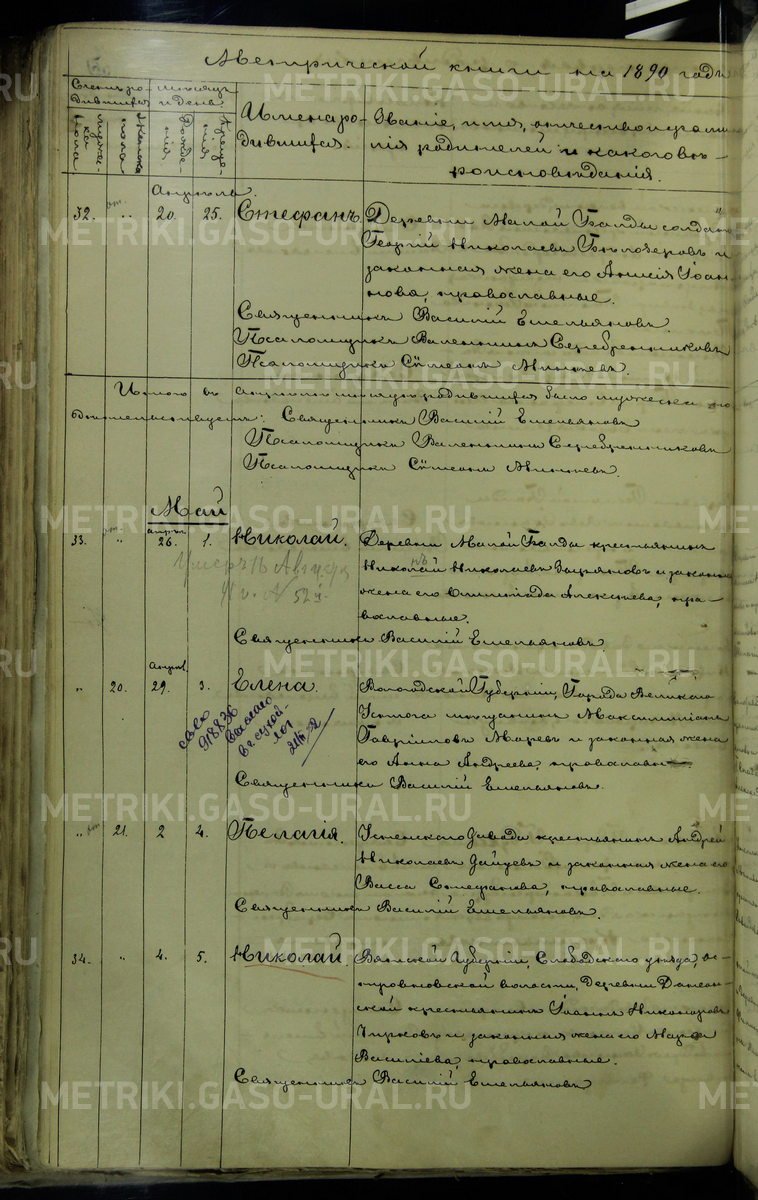 Метрической книги на 1890 годъ
Счетъ ро- Мѣсяцъ
дившихся и день.
мужес- женска рожде- креще-
каго го нія нія
пола пола
Имена ро-
дившихся.
Званіе, имя, отчество и фами
лія родителей и какого въ-
роисповѣданія.
Апрѣля.
32. " 20. 25. Стефанъ. Деревни Малой Грязды солдатъ
Георгій Николаевъ Бѣлозеровъ и
законная жена его Анисія Іоан-
нова, православные.
Священникъ Василій Емельяновъ
Псаломщикъ Валентинъ Серебренниковъ
Псаломщикъ Сѵмеонъ
Итого въ апрѣлѣ мѣсяцѣ родившихся было мужеска по
Священникъ Василій Емельяновъ
Псаломщикъ Валентинъ Серебренниковъ
Псаломщикъ Сѵмеонъ
Май
апрѣл.
33. " 26. 1. Николай. Деревни Малой крестьянинъ
Николай Николаевъ и законная
жена его Олимпіада Алексѣева, пра-
вославные.
Умеръ 16 Август
№ 52
Священникъ Василій Емельяновъ.
Апрѣл.
" 20. 29. 3. Елена. Вологодской Губерніи, Города Великаго
Устюга мѣщанинъ Максимиліанъ
Гавріиловъ и законная жена
его Анна Андреева, православн
свво
918836
выслано
в г. Сухой-
лог
Священникъ Василій Емельяновъ.
" 21. 2 4. Пелагія. Успенскаго Завода крестьянинъ Андрей
Николаевъ Зайцевъ и законная жена его
Васса Стефанова, православные.
Священникъ Василій Емельяновъ.
34. " 4. 5. Николай. Вятской Губерніи, Слободскаго уѣзда,
волости, Деревни
крестьянинъ Іоаннъ Никаноровъ
Чирковъ и законная жена его Марѳа
Василіева, православные.
Священникъ Василій Емельяновъ
METRIKI.GASO-URAL.RU